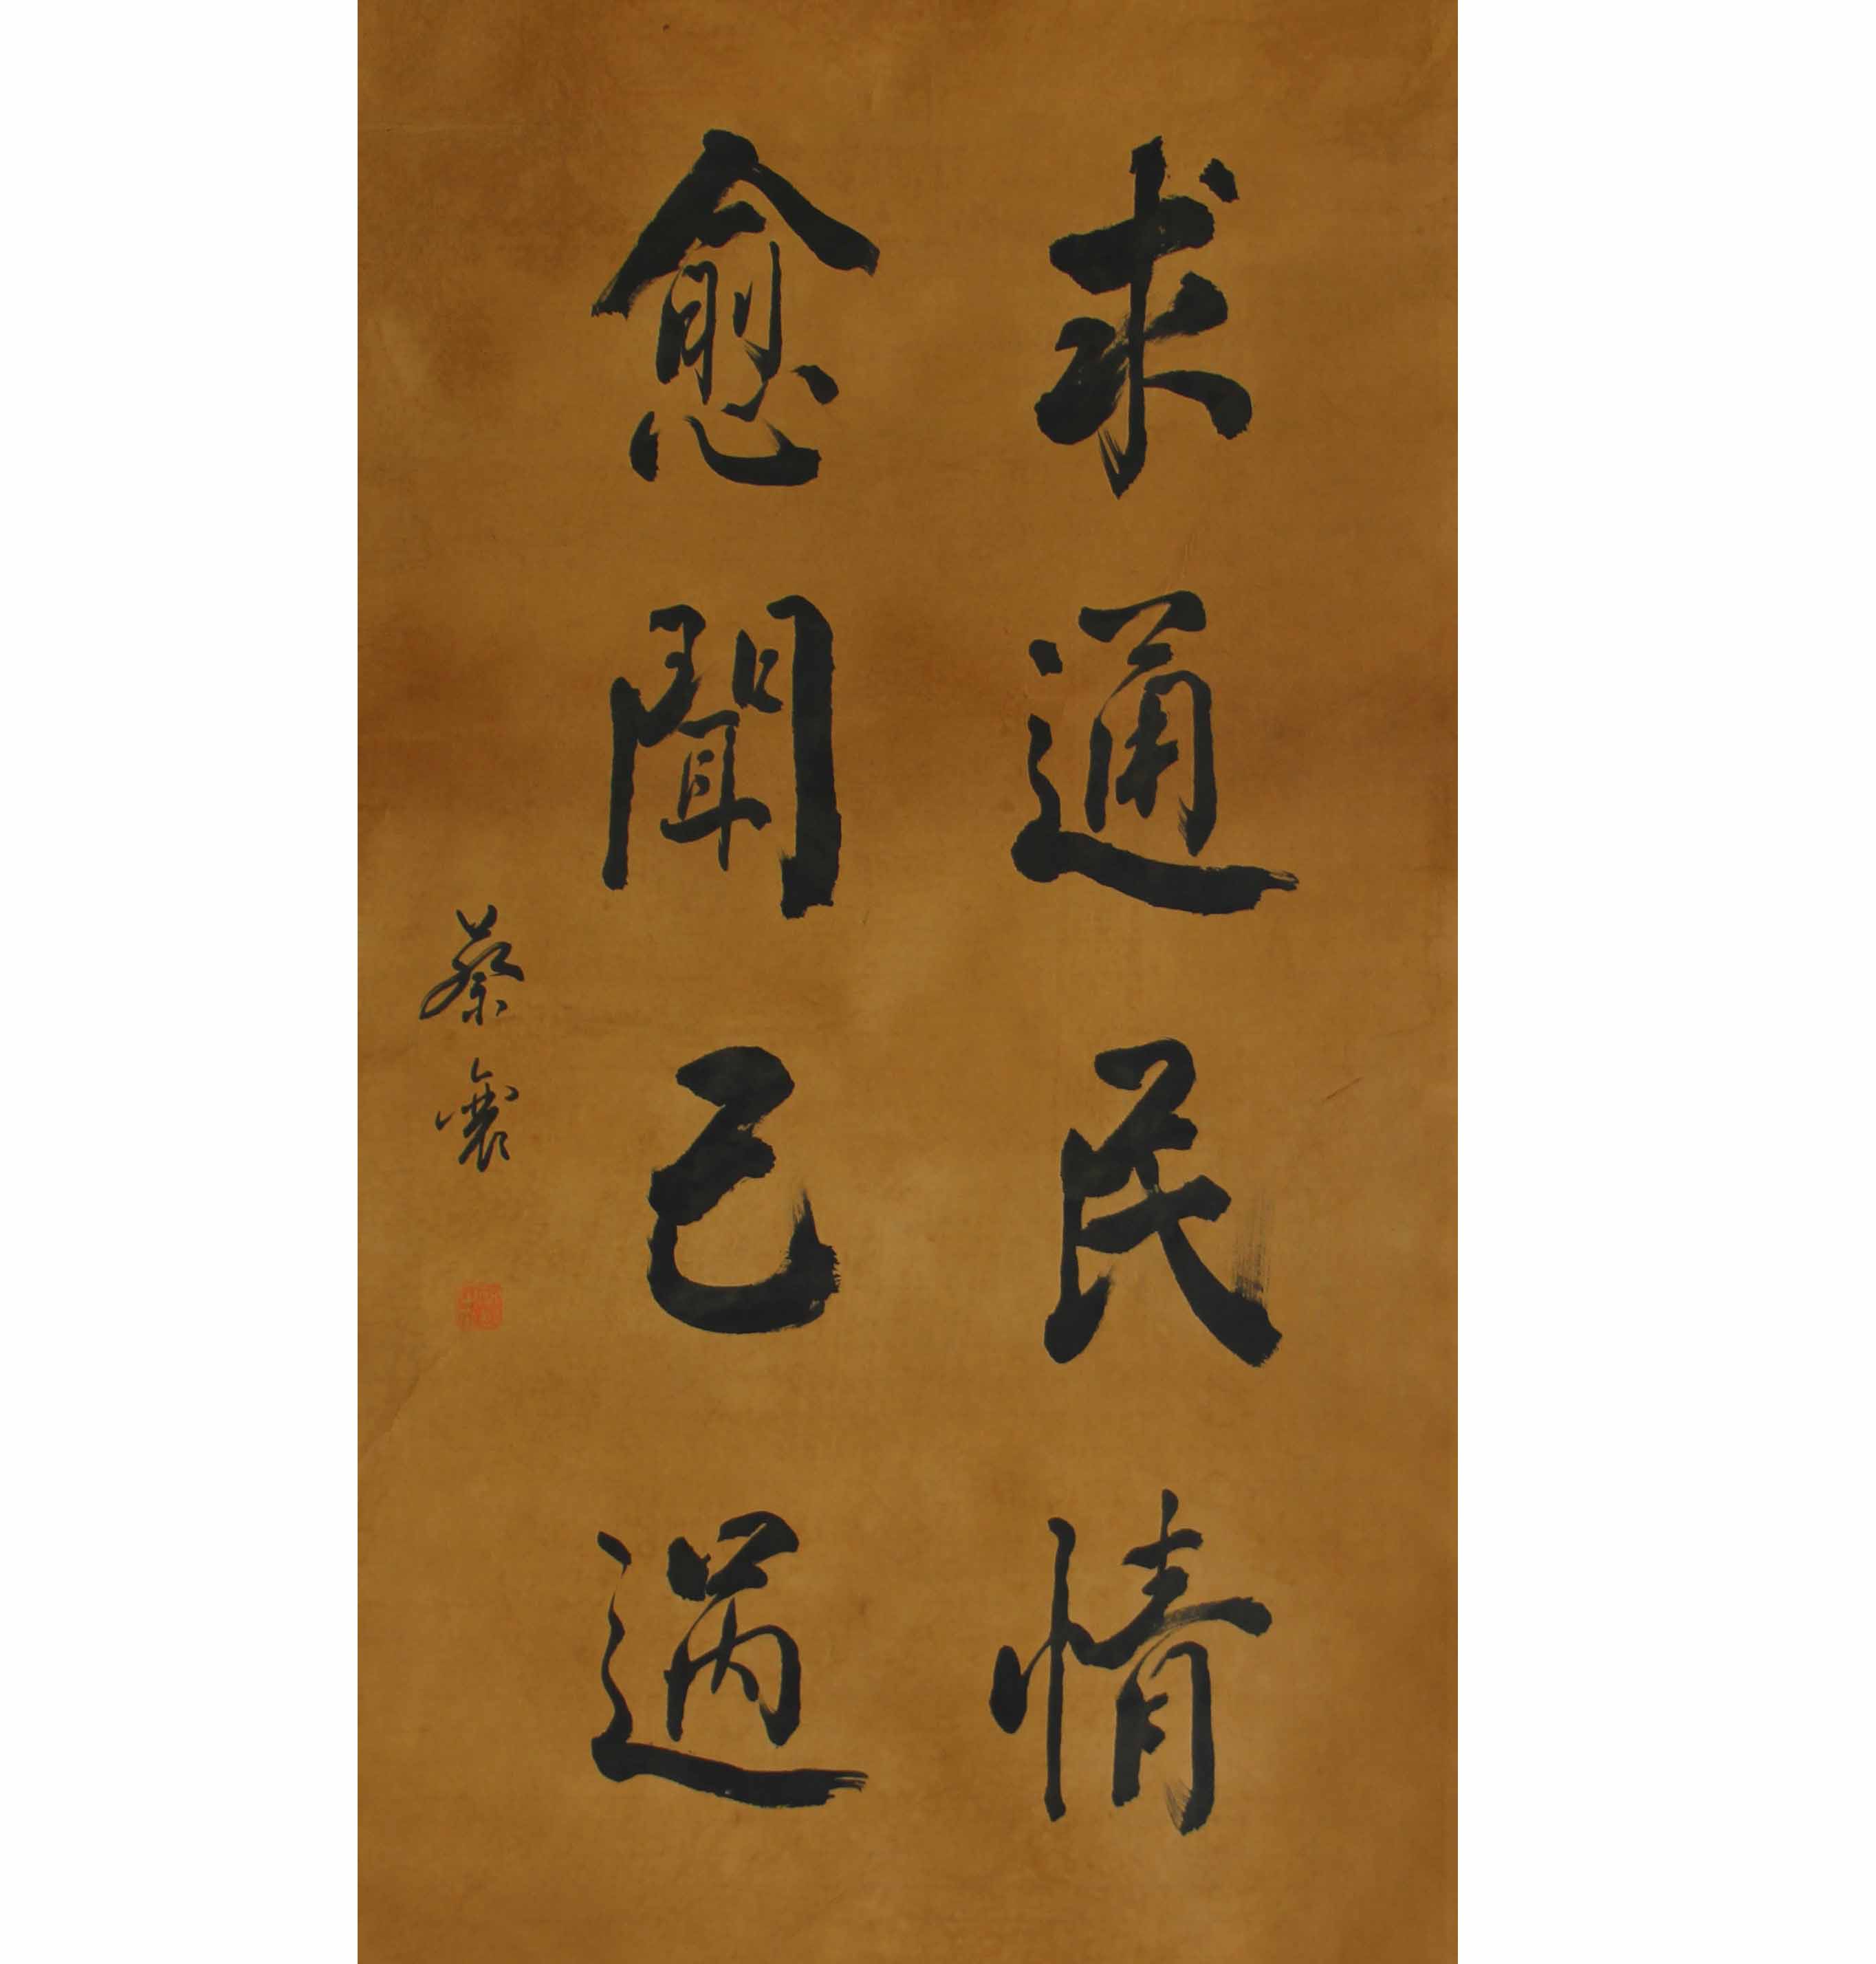 求通民情
愈聞己過
蔡襄